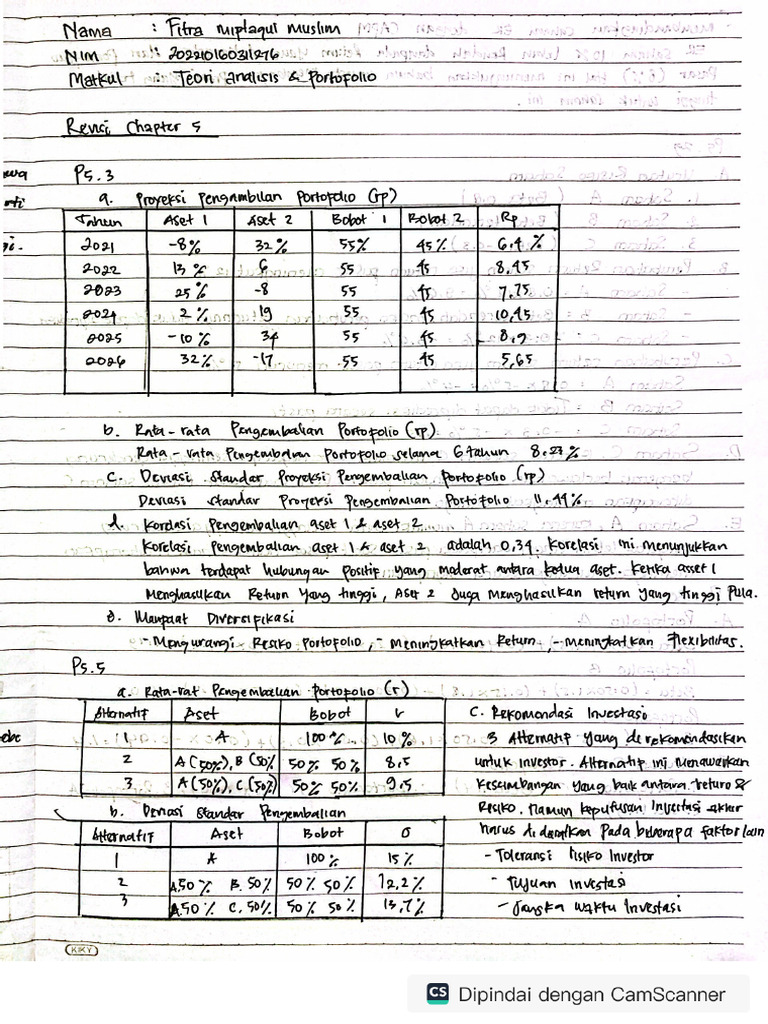 Nama : Fitra miptaqul muslim
Nim : 202210160311276
Matkul : Teori analisis & Portofolio
Revisi Chapter 5
P5.3
a. Proyeksi Pengambilan Portofolio (rp)
Tahun Aset 1 Aset 2 Bobot 1 Bobot 2 Rp
2021 -8% 32% 55% 45% 6,4 %
2022 13 % 6 55 45 8,45
2023 25% -8 55 45 7,75
2024 2% 19 55 45 10,45
2025 -10 % 34 55 45 8,9
2026 32% -17 55 45 5,65
b. Rata-rata Pengembalian Portofolio (rp)
Rata-rata Pengembalian Portofolio selama 6 tahun 8.27%
c. Deviasi Standar Proyeksi Pengembalian Portofolio (rp)
Deviasi standar Proyeksi Pengembalian Portofolio 11,44%
d. Korelasi Pengembalian aset 1 & aset 2
Korelasi Pengembalian aset 1 & aset 2 adalah 0,34. Korelasi ini menunjukkan
bahwa terdapat hubungan Positif yang moderat antara kedua aset. Ketika asset 1
Menghasilkan Return Yang tinggi, Aset 2 Juga Menghasilkan return yang tinggi Pula.
e. Manfaat Diversifikasi
- Mengurangi Resiko Portofolio, - Meningkatkan Return, - Meningkatkan Flexibilitas.
P5.5
a. Rata-rat Pengembalian Portofolio (r)
Alternatif Aset Bobot r
1 A 100% 10 %
2 A (50%), B (50% 50% 50% 8,5
3 A (50%), C (50%) 50% 50% 9,5
b. Deviasi Standar Pengembalian
Alternatif Aset Bobot σ
1 A 100% 15 %
2 A.50 % B. 50% 50% 50% 12,2%
3 A.50 % C. 50% 50% 50% 13,7%
C. Rekomondasi Investasi
3 Alternatif yang derekomendasikan
untuk investor. Alternatif ini menawarkan
keseimbangan yang baik antara return &
Resiko. Namun keputusan Investasi akhir
harus didasarkan Pada beberapa faktor lain
- Toleransi risiko Investor
- Tujuan investasi
- Jangka waktu Investasi
KIKY
CS Dipindai dengan CamScanner